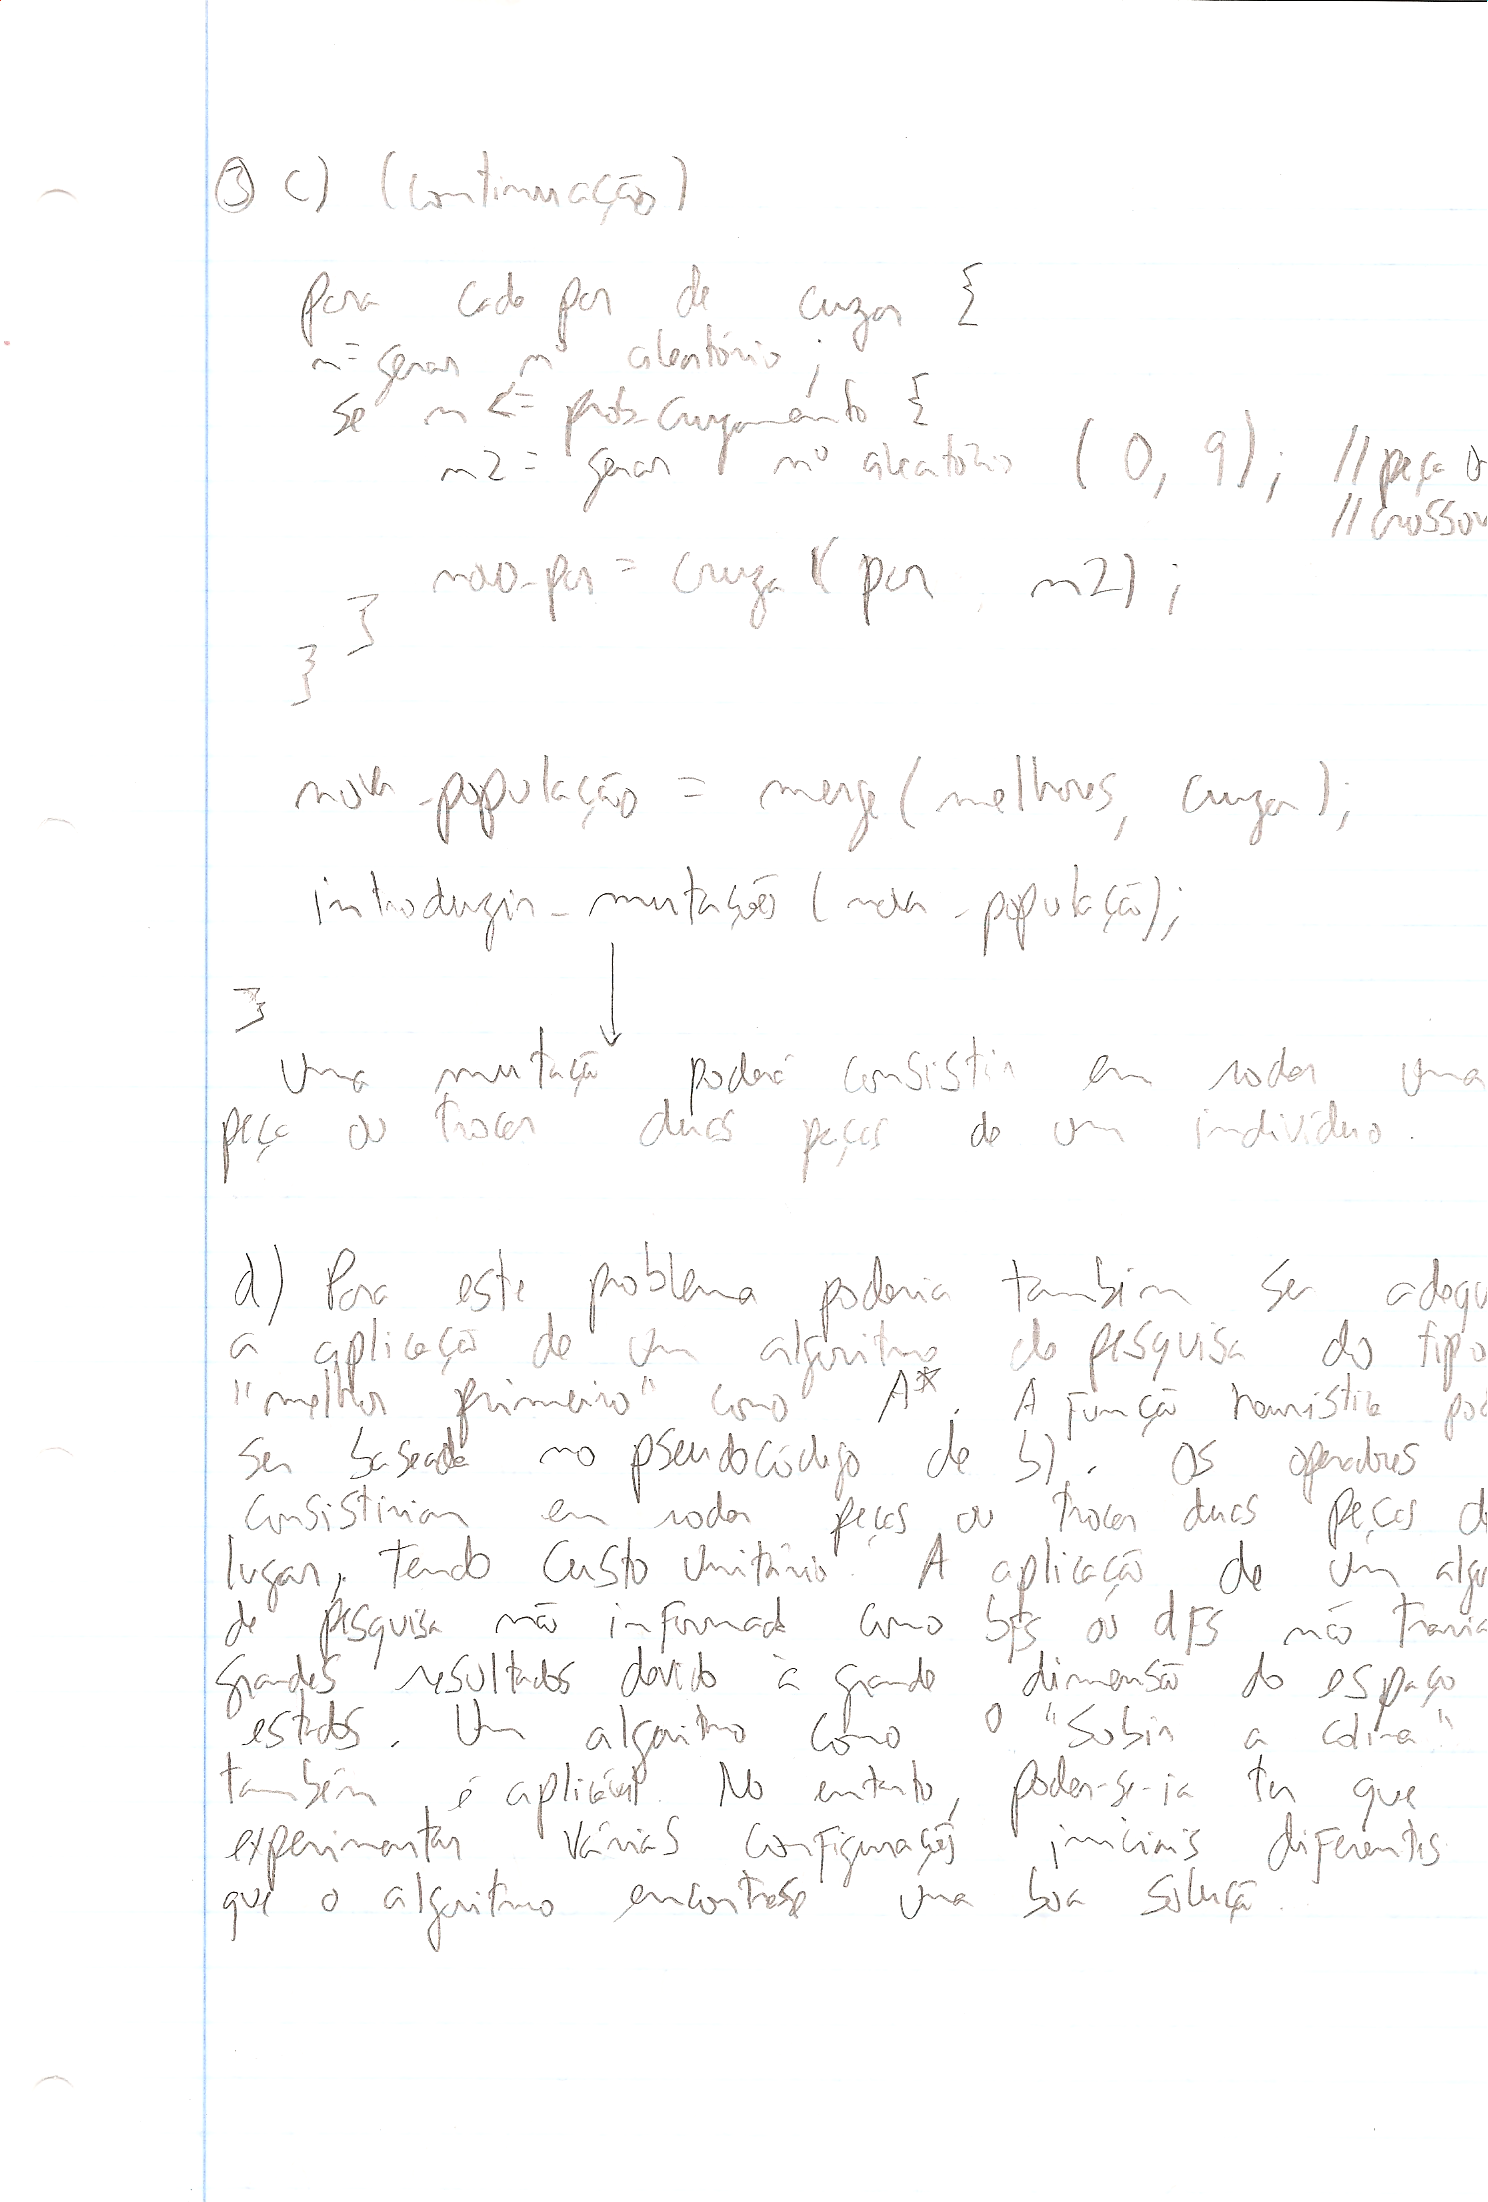 ③ c) (continuação)
para cada par de cruzar {
n = gerar nº aleatório ;
se n <= prob_cruzamento {
n2 = gerar nº aleatório ( 0, 9 ) ; // peça
// crossov
novo_par = cruza ( par , n2 ) ;
}
}
nova_população = merge ( melhores, cruzar ) ;
introduzir_mutações ( nova_população ) ;
}
Uma mutação poderá consistir em rodar uma
peça ou trocar duas peças de um indivíduo.
d) Para este problema poderia também ser adequ
a aplicação de um algoritmo de pesquisa do tipo
"melhor primeiro" como A*. A função heurística pod
ser baseada no pseudocódigo de b). Os operadores
consistiriam em rodar peças ou trocar duas peças d
lugar, tendo custo unitário. A aplicação de um algo
de pesquisa não informada como bfs ou dfs não traria
grandes resultados devido à grande dimensão do espaço
estados. Um algoritmo como o "Subir a colina"
também é aplicável. No entanto, poder-se-ia ter que
experimentar várias configurações iniciais diferentes
que o algoritmo encontrasse uma boa solução.